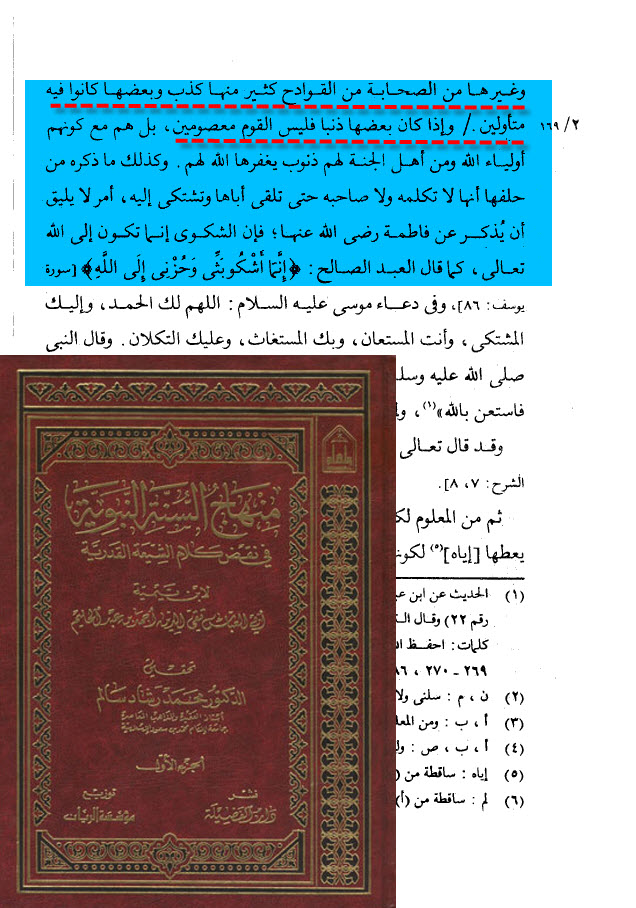 وغيرها من الصحابة من القوادح كثير منها كذب وبعضها كانوا فيه
متأولين./ وإذا كان بعضها ذنبا فليس القوم معصومين، بل هم مع كونهم ٢/ ١٦٩
أولياء الله ومن أهل الجنة لهم ذنوب يغفرها الله لهم. وكذلك ما ذكره من
حلفها أنها لا تكلمه ولا صاحبه حتى تلقى أباها وتشتكى إليه، أمر لا يليق
أن يُذكر عن فاطمة رضى الله عنها؛ فإن الشكوى إنما تكون إلى الله
تعالى، كما قال العبد الصالح: ﴿إِنَّمَا أَشْكُو بَثِّى وَحُزْنِى إِلَى اللَّهِ﴾ [سورة
يوسف: ٨٦]، وفى دعاء موسى عليه السلام: اللهم لك الحمد، وإليك
المشتكى، وأنت المستعان، وبك المستغاث، وعليك التكلان. وقال النبى
صلى الله عليه وسلم
فاستعن بالله»(١)،
وقد قال تعالى
الشرح: ٧، ٨].
ثم من المعلوم
يعطها [إياه](٥)
(١) الحديث عن ابن
رقم ٢٢) وقال
كلمات: احفظ
٢٦٩ - ٢٧٠ ،
(٢) ن ، م : سلنى
(٣) أ ، ب : ومن
(٤) أ ، ب ، ص :
(٥) إياه : ساقطة من
(٦) لم : ساقطة من (أ)
منهاج السنة النبوية
في نقض كلام الشيعة القدرية
لابن تيمية
أبي العباس تقي الدين أحمد بن عبد الحليم
تحقيق
الدكتور محمد رشاد سالم
الجزء الأول
نشر
دار الفضيلة
توزيع
مؤسسة الريان